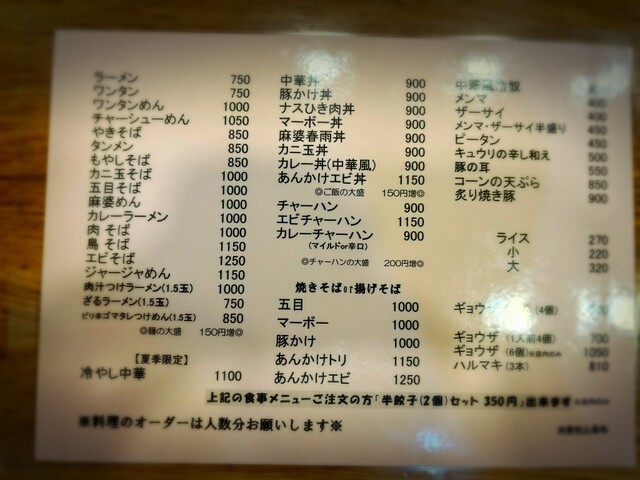 ラーメン 750
ワンタン 750
ワンタンめん 1000
チャーシューめん 1050
やきそば 850
タンメン 850
もやしそば 850
カニ玉そば 1000
五目そば 1000
麻婆めん 1000
カレーラーメン 1000
肉そば 1000
鳥そば 1150
エビそば 1250
ジャージャめん 1150
肉汁つけラーメン(1.5玉) 1000
ざるラーメン(1.5玉) 750
ピリ辛ゴマタレつけめん(1.5玉) 850
◎麺の大盛 150円増◎
【夏季限定】
冷やし中華 1100
中華丼 900
豚かけ丼 900
ナスひき肉丼 900
マーボー丼 900
麻婆春雨丼 900
カニ玉丼 900
カレー丼(中華風) 900
あんかけエビ丼 1150
◎ご飯の大盛 150円増◎
チャーハン 900
エビチャーハン 1150
カレーチャーハン 900
(マイルドor辛口)
◎チャーハンの大盛 200円増◎
焼きそばor揚げそば
五目 1000
マーボー 1000
豚かけ 1000
あんかけトリ 1150
あんかけエビ 1250
中華風冷奴
メンマ 400
ザーサイ 400
メンマ・ザーサイ半盛り 450
ピータン 450
キュウリの辛し和え 500
豚の耳 550
コーンの天ぷら 850
炙り焼き豚 900
ライス 270
小 220
大 320
ギョウザ (4個)
ギョウザ (1人前4個) 700
ギョウザ (6個) 1050
ハルマキ (3本) 810
上記の食事メニューご注文の方「半餃子(2個)セット 350円」出来ます
※料理のオーダーは人数分お願いします※